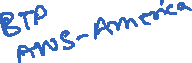 BTP
ANS-America